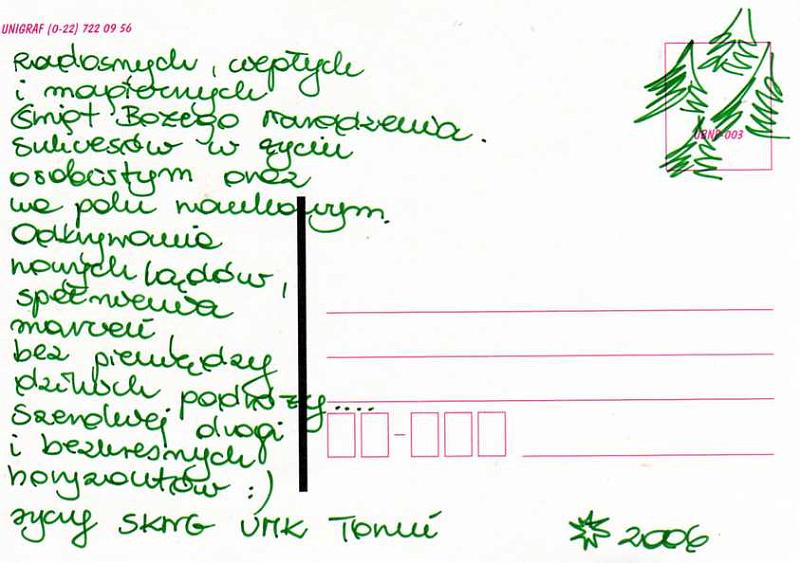 UNIGRAF (0-22) 722 09 56
Radosnych, ciepłych
i magicznych
Świąt Bożego Narodzenia.
Sukcesów w życiu
osobistym oraz
na polu naukowym.
Odkrywania
nowych lądów,
spełnienia
marzeń
bez pieniędzy
dzikich podróży....
Szerokiej drogi
i bezkresnych
horyzontów :)
życzy SKNG UMK Toruń
2006